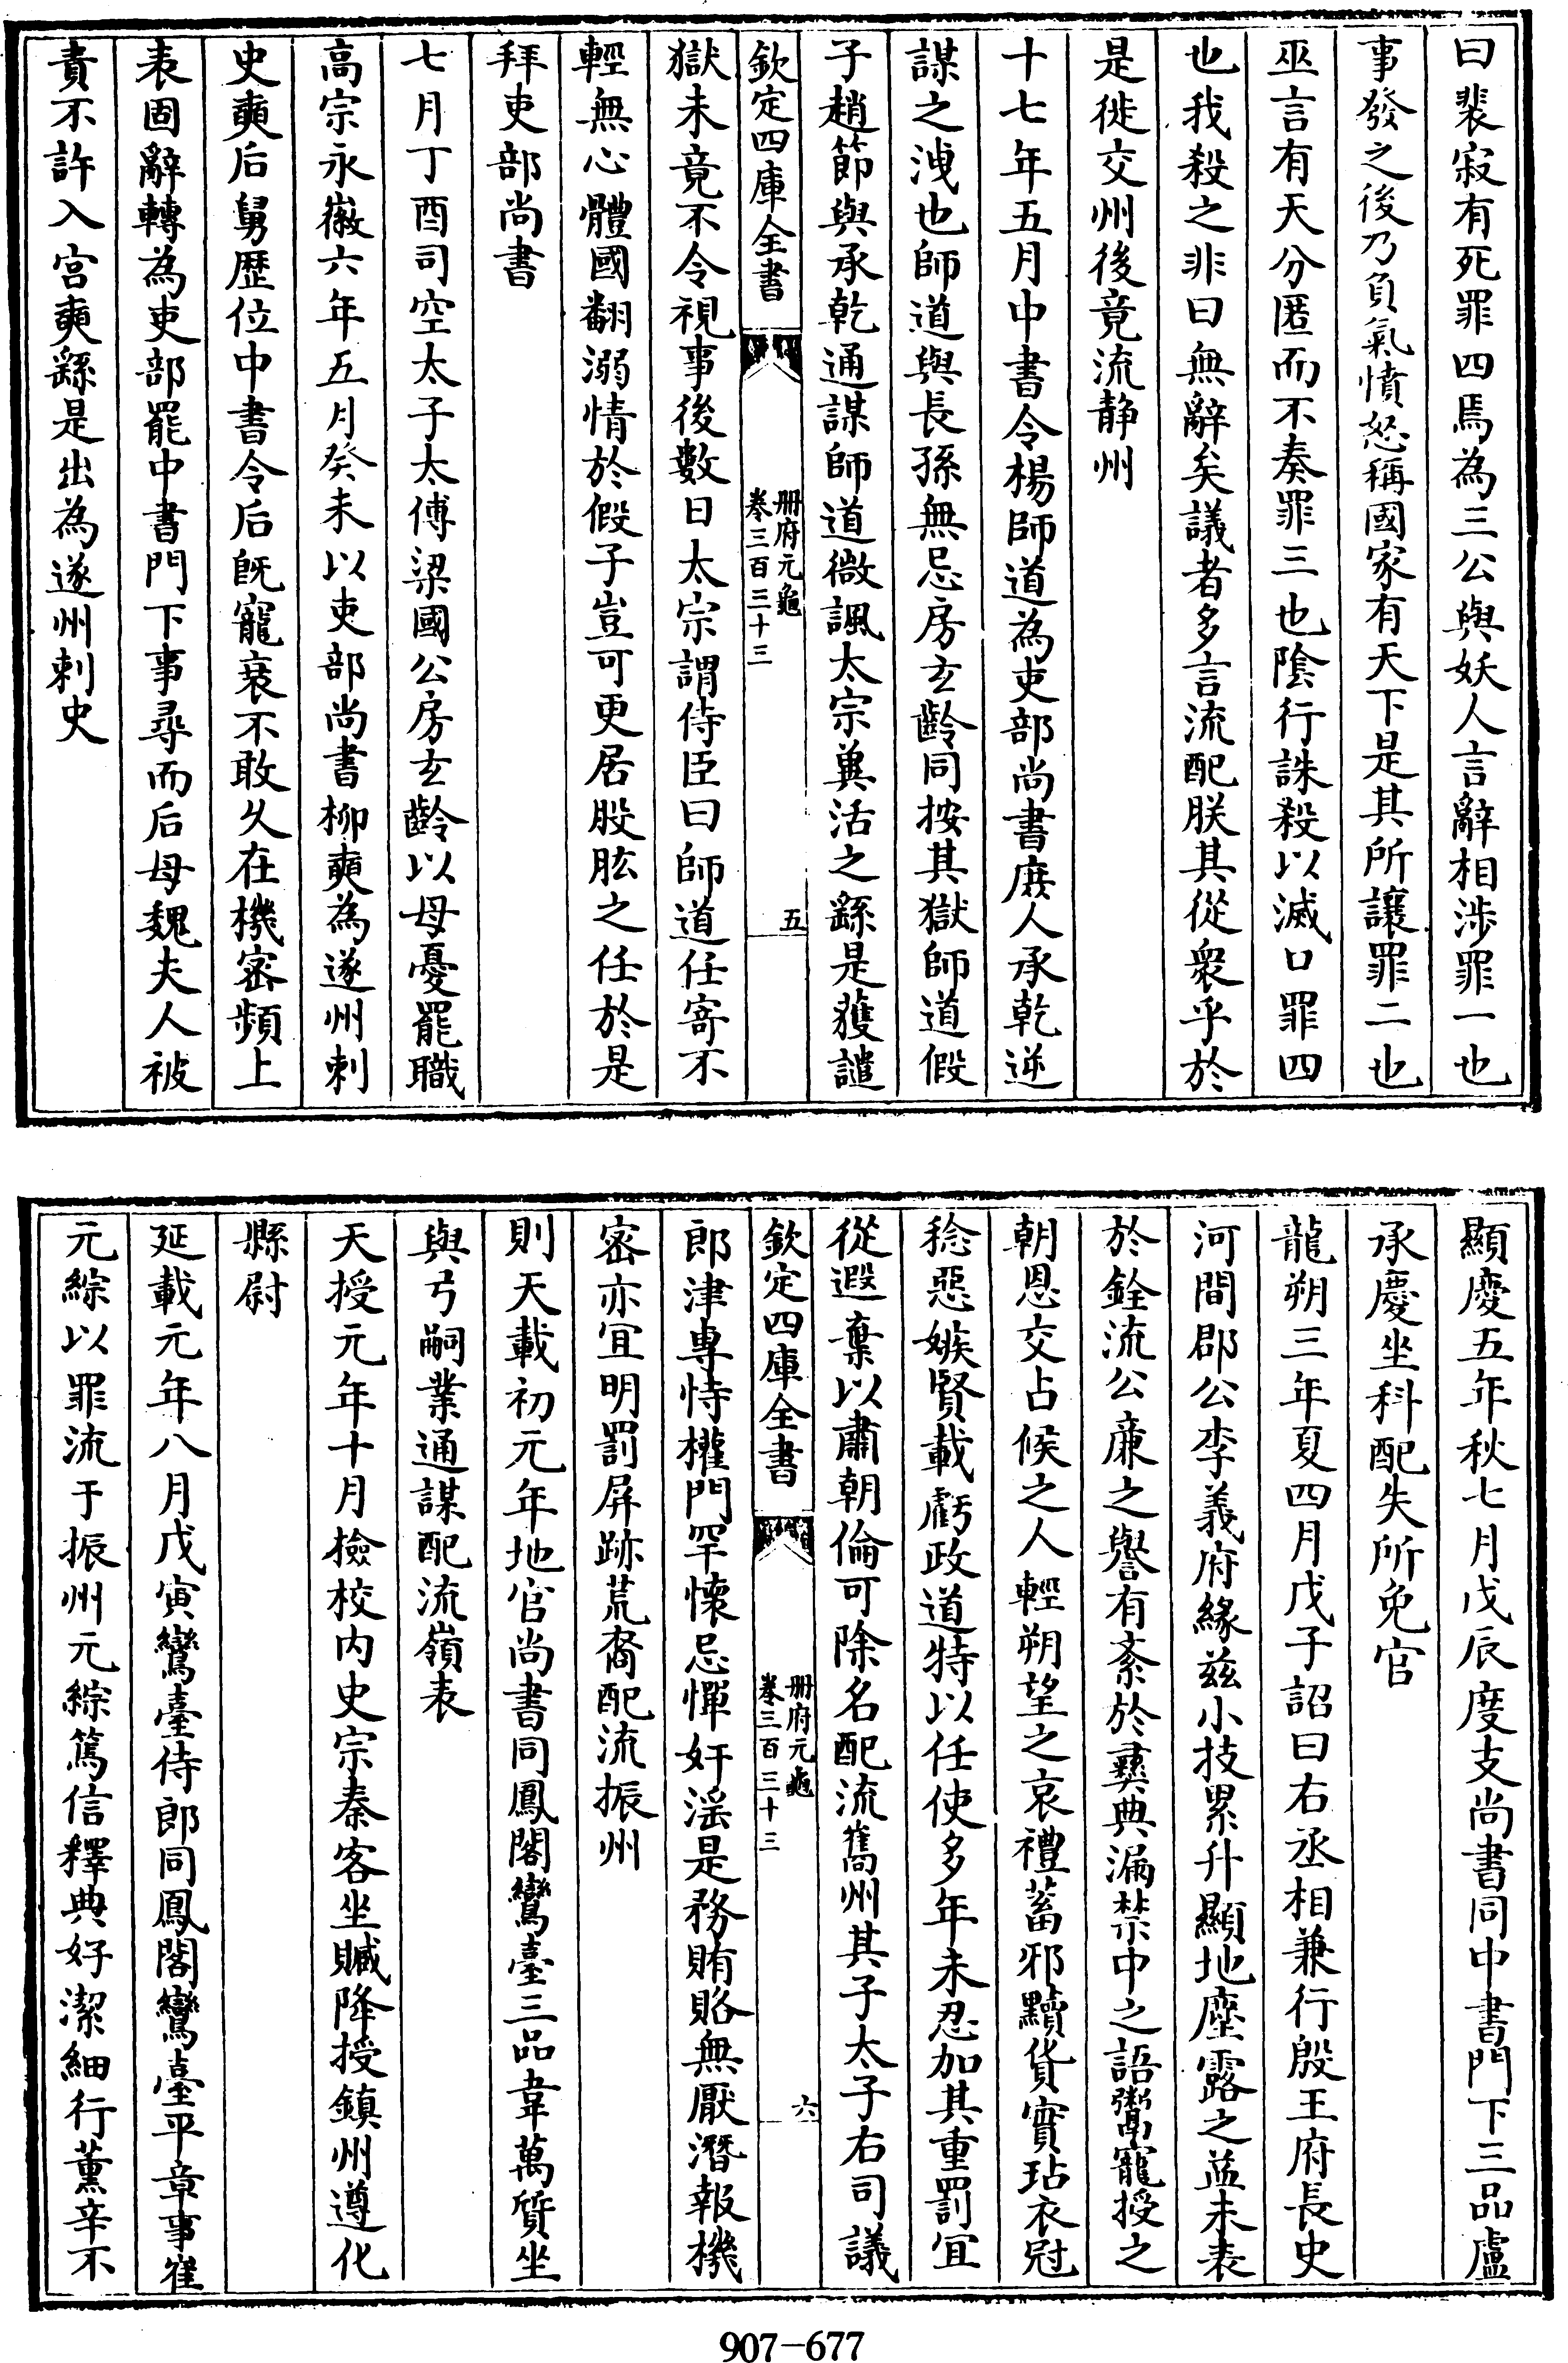 曰裴寂有死罪四焉為三公與妖人言辭相涉罪一也
事發之後乃負氣憤怒稱國家有天下是其所讓罪二也
巫言有天分匿而不奏罪三也陰行誅殺以滅口罪四
也我殺之非曰無辭矣議者多言流配朕其從衆乎於
是徙交州後竟流静州
十七年五月中書令楊師道為吏部尚書庶人承乾逆
謀之洩也師道與長孫無忌房玄齡同按其獄師道假
子趙節與承乾通謀師道微諷太宗兾活之繇是獲譴
欽定四庫全書
册府元龜
卷三百三十三
五
獄未竟不令視事後數日太宗謂侍臣曰師道任寄不
輕無心體國翻溺情於假子豈可更居股肱之任於是
拜吏部尚書
七月丁酉司空太子太傅梁國公房玄齡以母憂罷職
高宗永徽六年五月癸未以吏部尚書柳奭為遂州刺
史奭后舅歷位中書令后既寵衰不敢久在機密頻上
表固辭轉為吏部罷中書門下事尋而后母魏夫人被
責不許入宫奭繇是出為遂州刺史
顯慶五年秋七月戊辰度支尚書同中書門下三品盧
承慶坐科配失所免官
龍朔三年夏四月戊子詔曰右丞相兼行殷王府長史
河間郡公李義府緣兹小技累升顯地塵露之益未表
於銓流公廉之譽有紊於彞典漏禁中之語鬻寵授之
朝恩交占候之人輕朔望之哀禮蓄邪黷貨實玷衣冠
稔惡嫉賢載虧政道特以任使多年未忍加其重罰宜
從遐棄以肅朝倫可除名配流嶲州其子太子右司議
欽定四庫全書
册府元龜
卷三百三十三
六
郎津專恃權門罕懷忌憚奸滛是務賄賂無厭潛報機
密亦宜明罰屏跡荒裔配流振州
則天載初元年地官尚書同鳳閣鸞臺三品韋萬質坐
與弓嗣業通謀配流嶺表
天授元年十月檢校内史宗秦客坐贓降授鎮州遵化
縣尉
延載元年八月戊寅鸞臺侍郎同鳳閣鸞臺平章事崔
元綜以罪流于振州元綜篤信釋典好潔細行薰辛不
907-677